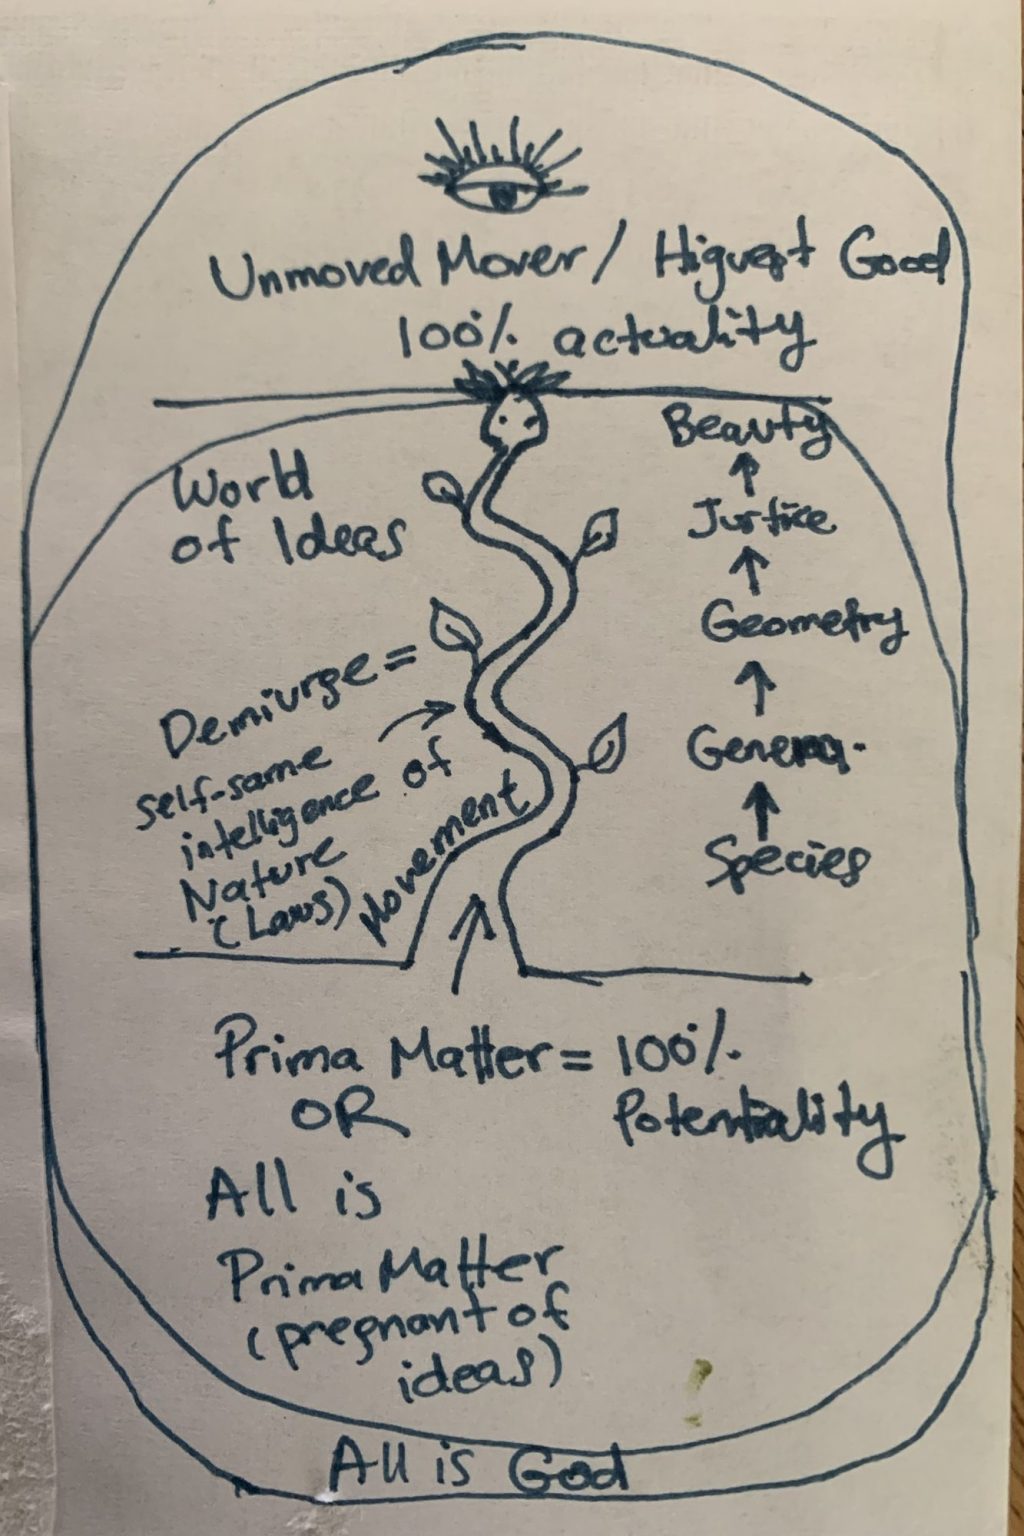 Unmoved Mover / Highest Good
100% actuality
World
of Ideas
Beauty
Justice
Geometry
Genera.
Species
Demiurge =
self-same
intelligence of
Nature
(Laws)
Movement
Prima Matter = 100%
OR
Potentiality
All is
Prima Matter
(pregnant of
ideas)
All is God